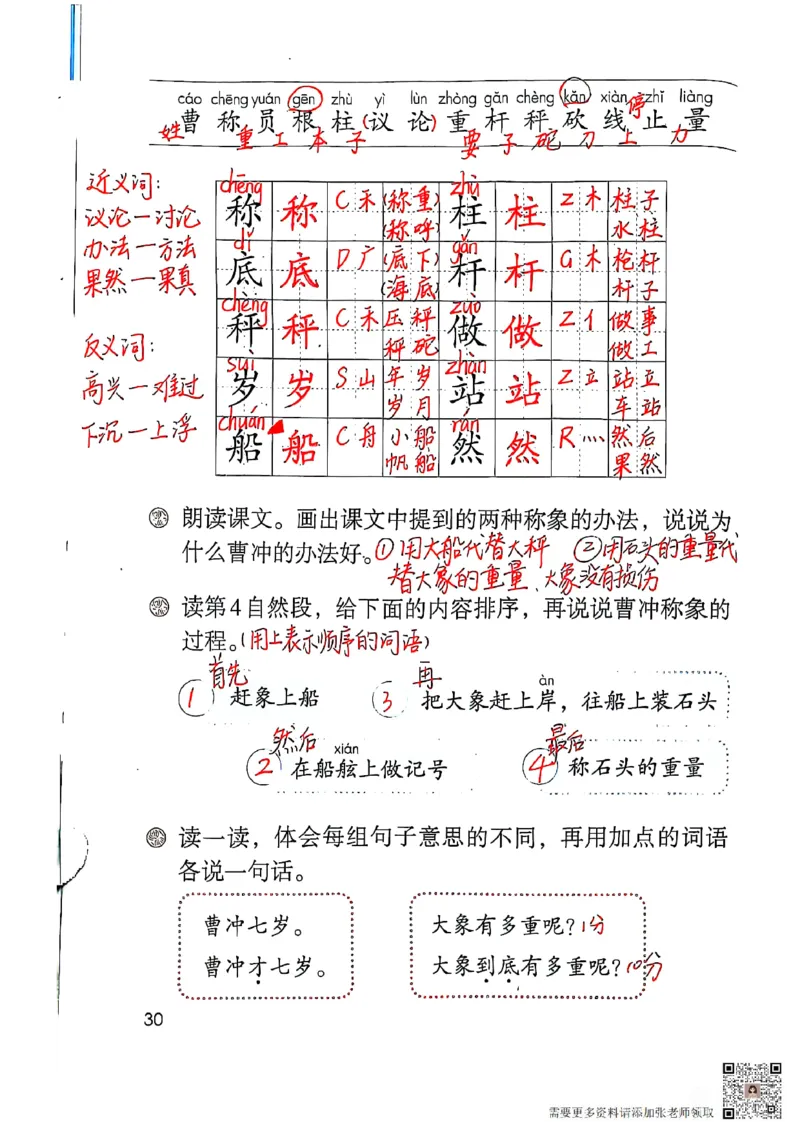 cáo chēng yuán gēn zhù yì lùn zhòng gǎn chèng kǎn xiàn zhǐ liàng
曹 称 员 根 柱 (议 论) 重 杆 秤 砍 线 停止 量
姓 重 工 本 子 要 子 砣 刀 上 力
近义词:
议论—讨论
办法—方法
果然—果真
反义词:
高兴—难过
下沉—上浮
chēng 称 称 C 禾 (称重) (称呼) zhù 柱 柱 Z 木 柱子 水柱
dǐ 底 底 D 广 (底下) (海底) gǎn 杆 杆 G 木 枪杆 杆子
chèng 秤 秤 C 禾 压秤 秤砣 zuò 做 做 Z 亻 做事 做工
suì 岁 岁 S 山 年岁 岁月 zhàn 站 站 Z 立 站立 车站
chuán 船 船 C 舟 小船 帆船 rán 然 然 R 灬 然后 果然
朗读课文。画出课文中提到的两种称象的办法，说说为
什么曹冲的办法好。①用大船代替大秤 ②用石头的重量代
替大象的重量、大象没有损伤
读第4自然段，给下面的内容排序，再说说曹冲称象的
过程。(用上表示顺序的词语)
首先 再 àn
1 赶象上船 3 把大象赶上岸，往船上装石头
然后 xián 最后
2 在船舷上做记号 4 称石头的重量
读一读，体会每组句子意思的不同，再用加点的词语
各说一句话。
曹冲七岁。 大象有多重呢？1分
曹冲才七岁。 大象到底有多重呢？10分
30
需要更多资料请添加张老师领取